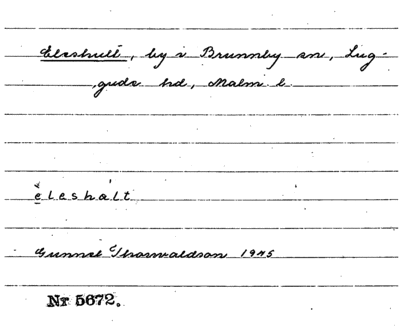 Eleshult, by i Brunnby sn, Lug-
gude hd, Malm l
eleshalt
Gunnel Thorwaldson 1945
Nr 5672.